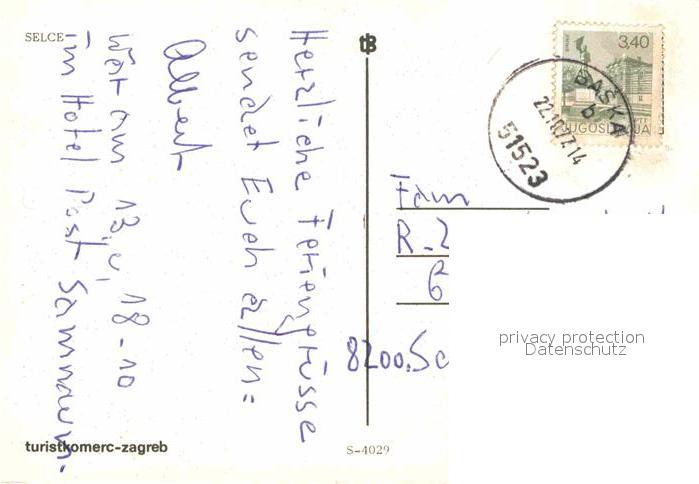 SELCE
Herzliche Feriengrüsse
sendet Euch allen:
Albert
War am 13. u. 18-10
im Hotel Post Samnaun.
3,40
JUGOSLAVIJA
BAŠKA
b
22.10.77.14
51523
Fam
R. Z
6
8200 Sc
privacy protection
Datenschutz
turistkomerc-zagreb
S-4029